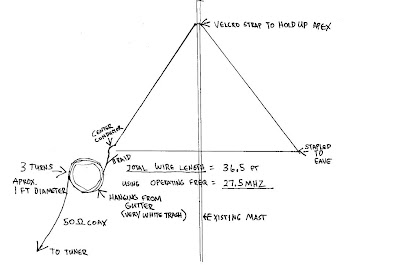 VELCRO STRAP TO HOLD UP APEX
CENTER
CONDUCTOR
BRAID
STAPLED
TO
EAVE
3 TURNS
APROX.
1 FT DIAMETER
TOTAL WIRE LENGTH = 36.5 FT
USING OPERATING FREQ = 27.5 MHZ
HANGING FROM
GUTTER
(VERY WHITE TRASH)
EXISTING MAST
50Ω COAX
TO TUNER